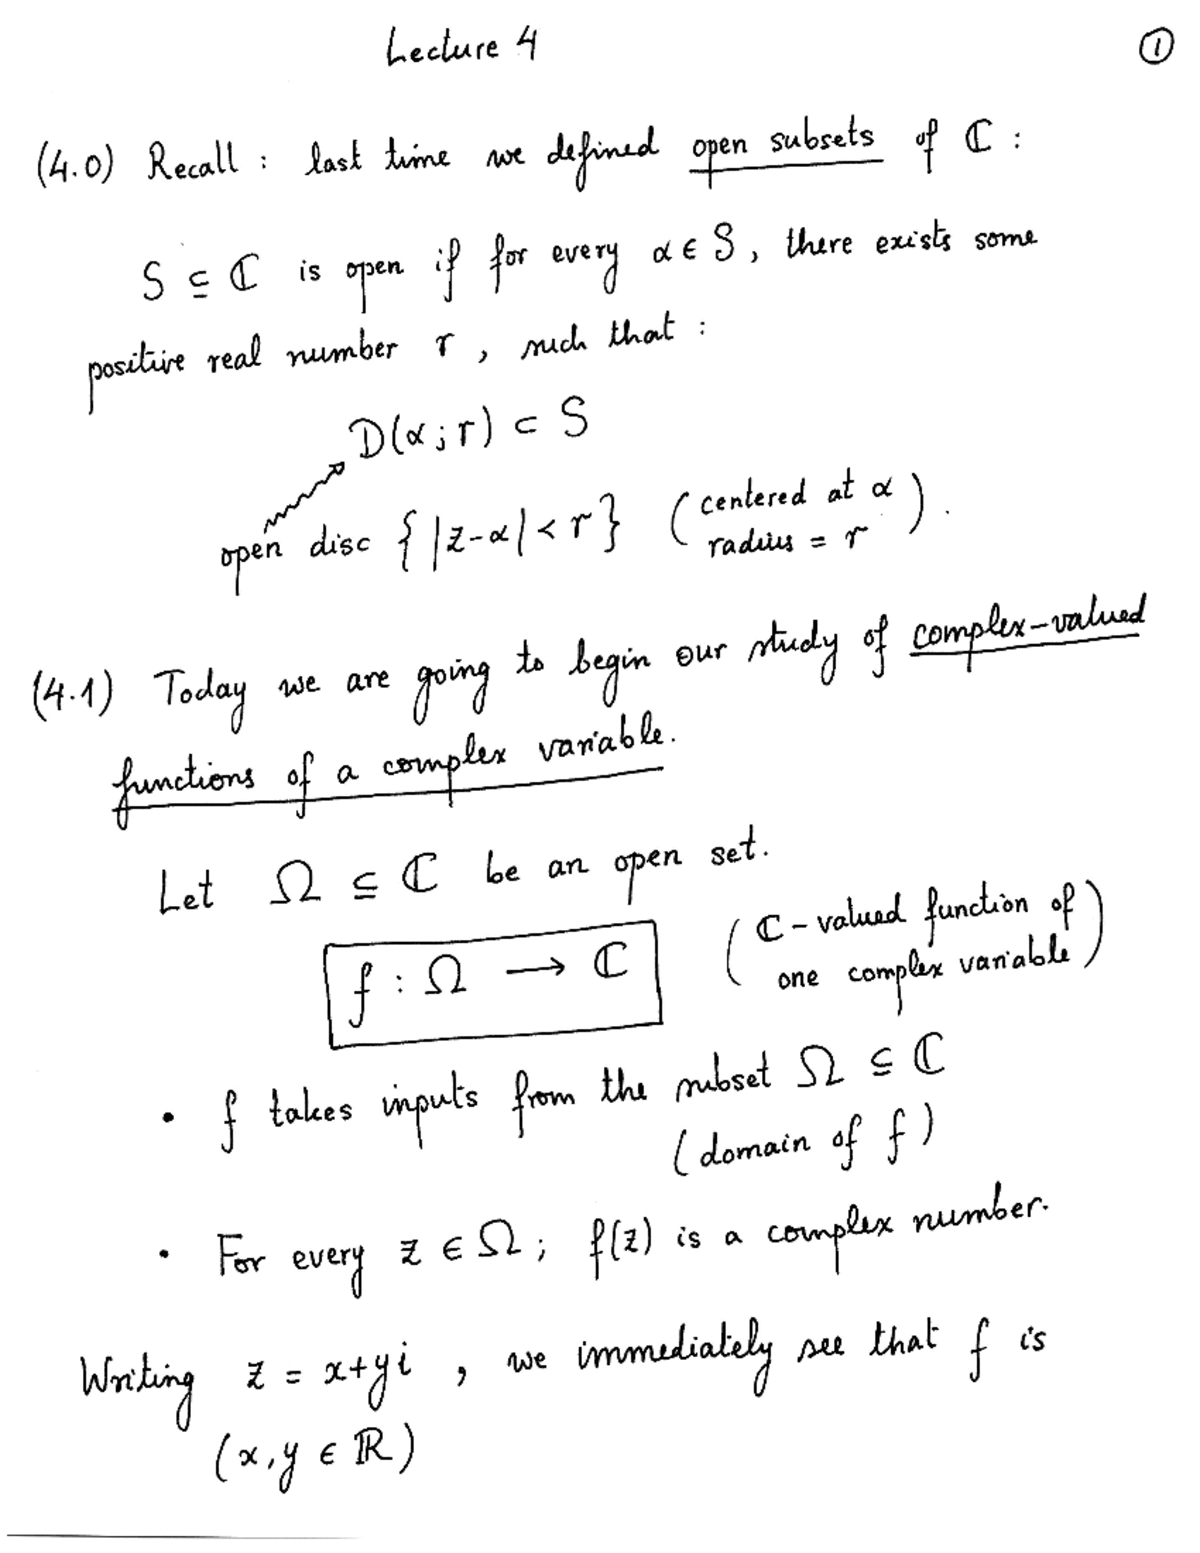 Lecture 4
①
(4.0) Recall : last time we defined open subsets of ℂ :
S ⊆ ℂ is open if for every α ∈ S, there exists some
positive real number r, such that :
D(α; r) ⊂ S
open disc { |z-α| < r } (centered at α
radius = r).
(4.1) Today we are going to begin our study of complex-valued
functions of a complex variable.
Let Ω ⊆ ℂ be an open set.
f : Ω ⟶ ℂ
(ℂ-valued function of
one complex variable)
• f takes inputs from the subset Ω ⊆ ℂ
(domain of f)
• For every z ∈ Ω; f(z) is a complex number.
Writing z = x+yi, we immediately see that f is
(x, y ∈ ℝ)